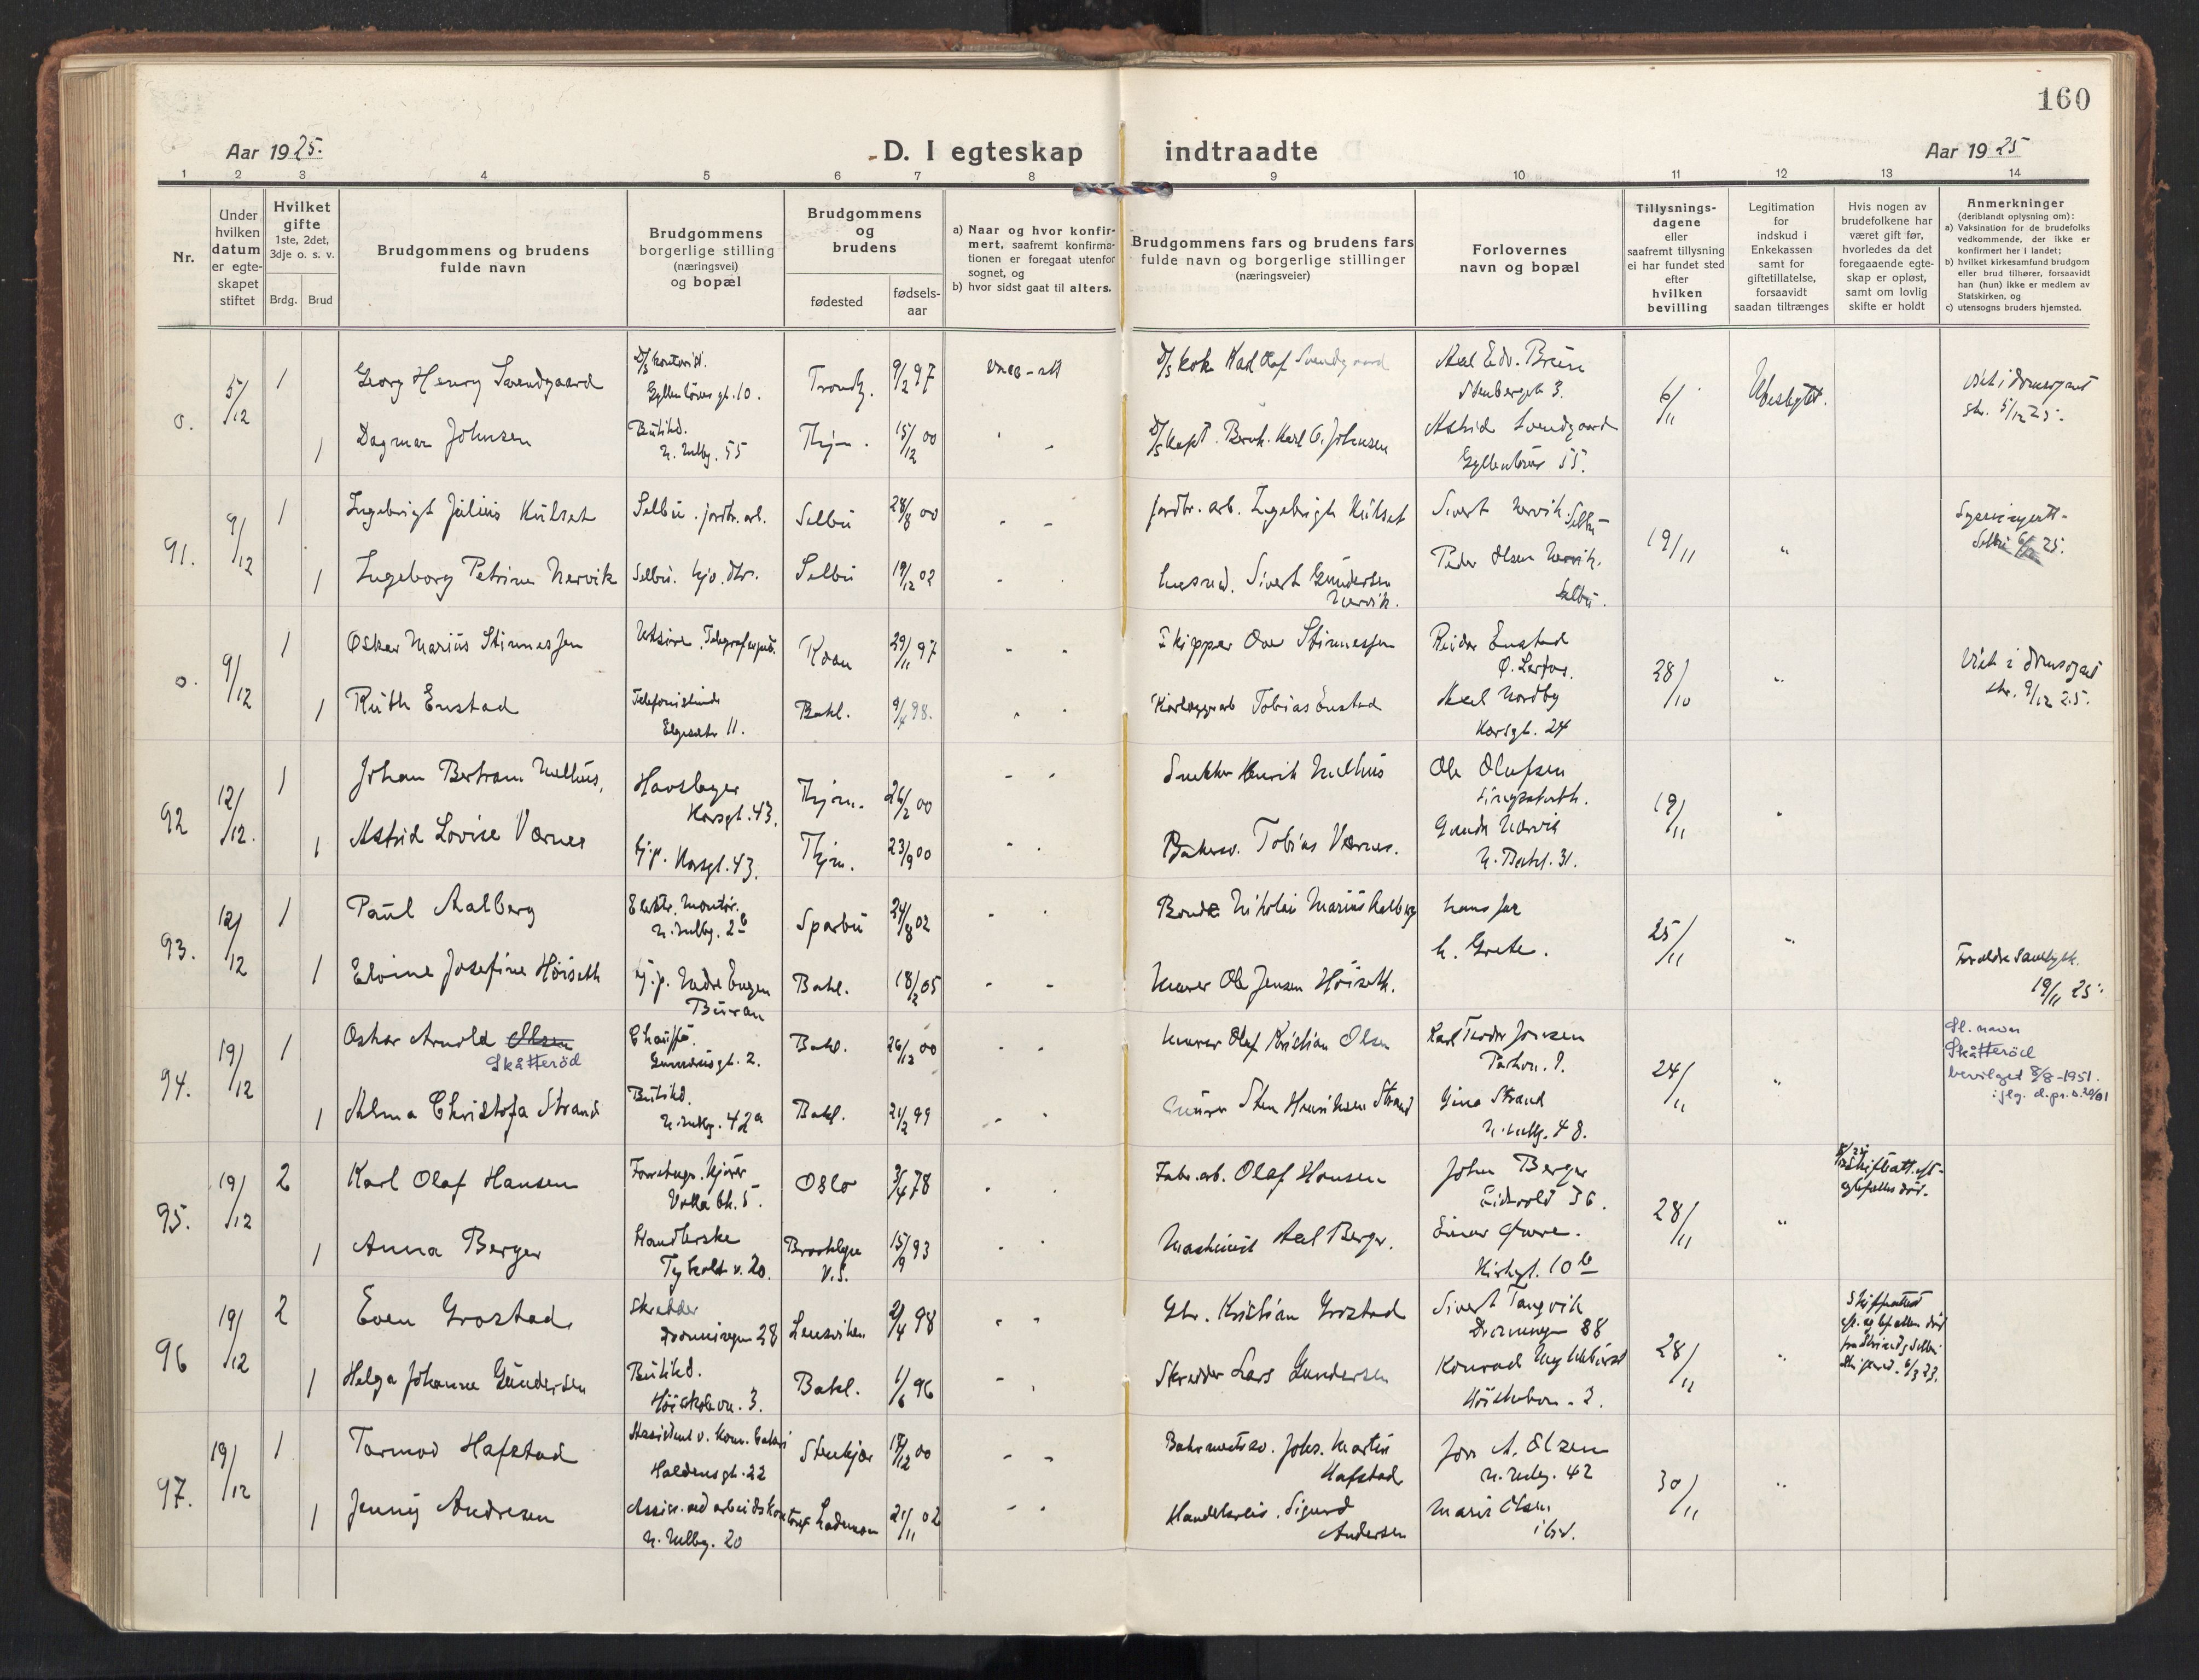 160
Aar 1925.
D. I egteskap indtraadte
Aar 1925
1 2 3 4 5 6 7 8 9 10 11 12 13 14
Nr.
Under hvilken datum er egteskapet stiftet
Hvilket gifte 1ste, 2det, 3dje o. s. v.
Brdg. Brud
Brudgommens og brudens fulde navn
Brudgommens borgerlige stilling (næringsvei) og bopæl
Brudgommens og brudens
fødested
fødsels-aar
a) Naar og hvor konfirmert, saafremt konfirmationen er foregaat utenfor sognet, og
b) hvor sidst gaat til alters.
Brudgommens fars og brudens fars fulde navn og borgerlige stillinger (næringsveier)
Forlovernes navn og bopæl
Tillysningsdagene eller saafremt tillysning ei har fundet sted efter hvilken bevilling
Legitimation for indskud i Enkekassen samt for giftetillatelse, forsaavidt saadan tiltrænges
Hvis nogen av brudefolkene har været gift før, hvorledes da det foregaaende egteskap er opløst, samt om lovlig skifte er holdt
Anmerkninger (deriblandt oplysning om):
a) Vaksination for de brudefolks vedkommende, der ikke er konfirmert her i landet;
b) hvilket kirkesamfund brudgom eller brud tilhører, forsaavidt han (hun) ikke er medlem av Statskirken, og
c) utensogns bruders hjemsted.
o. 5/12 1 Georg Henry Svendgaard D/s kontorist. Gyllenløves gt. 10. Trondhj. 9/2 97 D/s kok Karl Olaf Svendgaard Axel Edv. Bruun Stenberggt 3. 6/11 Ubeskyttet. viet i domsognet
5/12 25.
1 Dagmar Johnsen Butikd. N. Indby. 55 Thjm. 15/12 00 D/s kapt. Bernh. Karl O. Johnsen Astrid Svendgaard
Gyllenløves 55.
91. 9/12 1 Ingebrigt Julius Kulset Selbu. jordbr. arb. Selbu 28/8 00 jordbr. arb. Ingebrigt Kulset Sivert Nervik. Selbu 19/11 "
Selbu 6/12 25.
1 Ingeborg Petrine Nervik Selbu. hjv. dtr. Selbu 19/12 02 Husmd. Sivert Gundersen Nervik. Peder Olsen Nervik. Selbu.
o. 9/12 1 Oskar Marius Stinnessen Utsire. Telegrafexped. Roan 29/11 97 Skipper Ove Stinnessen Reidar Enstad Ø. Lerfos. 28/10 " Viet i domsognet
9/12 25.
1 Ruth Enstad Telefonistinde Elgeseter 11. Bakl. 9/4 98. Tobias Enstad Axel Nordby Korsgt. 24
92 12/12. 1 Johan Bertram Melhus, Hovslager Korsgt. 43. Thjm. 26/2 00 Snekker Henrik Melhus Ole Olufsen 19/11 "
1 Astrid Lovise Værnes hj. p. Korsgt. 43. Thjm. 23/9 00 Bakersv. Tobias Værnes. N. Bakl. 31.
93. 12/12 1 Paul Aalberg Elektr. Montør. Sparbu 24/8 02 Bonde Nikolai Marius Aalberg hans far
h. Grete. 25/11 "
1 Elvine Josefine Høiseth hj. p. Nedre Engen Buran Bakl. 18/2 05 Murer Ole Jensen Høiseth. Forældre samtykk.
19/11 25.
94. 19/12 1 Oskar Arnold Olsen
Skåtterød Chauffør. Bakl. 26/12 00 Murer Olaf Kristian Olsen Karl Teodor Jonsen 24/11 " Sl. navn
Skåtterød
bevilget 8/8-1951.
1 Alma Christofa Strand Butikd. N. Indby. 42a Bakl. 21/2 99 Murer Sten Henriksen Strand Gina Strand
N. Indby. 48.
95. 19/12 2 Karl Olaf Hansen Volla bk. 5. Oslo 3/4 78 Fabr. arb. Olaf Hansen John Berger
Eidsvold 36. 28/11 " Skifteatt. eft. egtefælles død.
1 Anna Berger Handlerske
Tyholt v. 20. Brooklyn U.S. 15/9 93 Maskinist Axel Berger. Einar Owre.
Kirkegt. 10b
96 19/12 2 Even Grostad Skredder
Dronningen 28 Lensviken 2/4 98 Gbr. Kristian Grostad Sivert Tangvik
Dronningen 88 28/11 " Skifteattest
eft. egtefælles død
6/3 23.
1 Helga Johanne Gundersen Butikd.
Høiskolevn. 3. Bakl. 1/6 96 Skredder Lars Gundersen Konrad Myklebust
Høiskolevn. 3.
97. 19/12 1 Tormod Hafstad Assistent v. kom.
Haldensgt. 22 Stenkjær 18/12 00 Johs. Martin Hafstad Jon A. Olsen
N. Indby. 42 30/11 "
1 Jenny Andresen Assist. ved arbeidskontoret
N. Indby. 20 Lademoen 21/11 02 Handelsreis. Sigurd Andersen Marie Olsen
ibd.